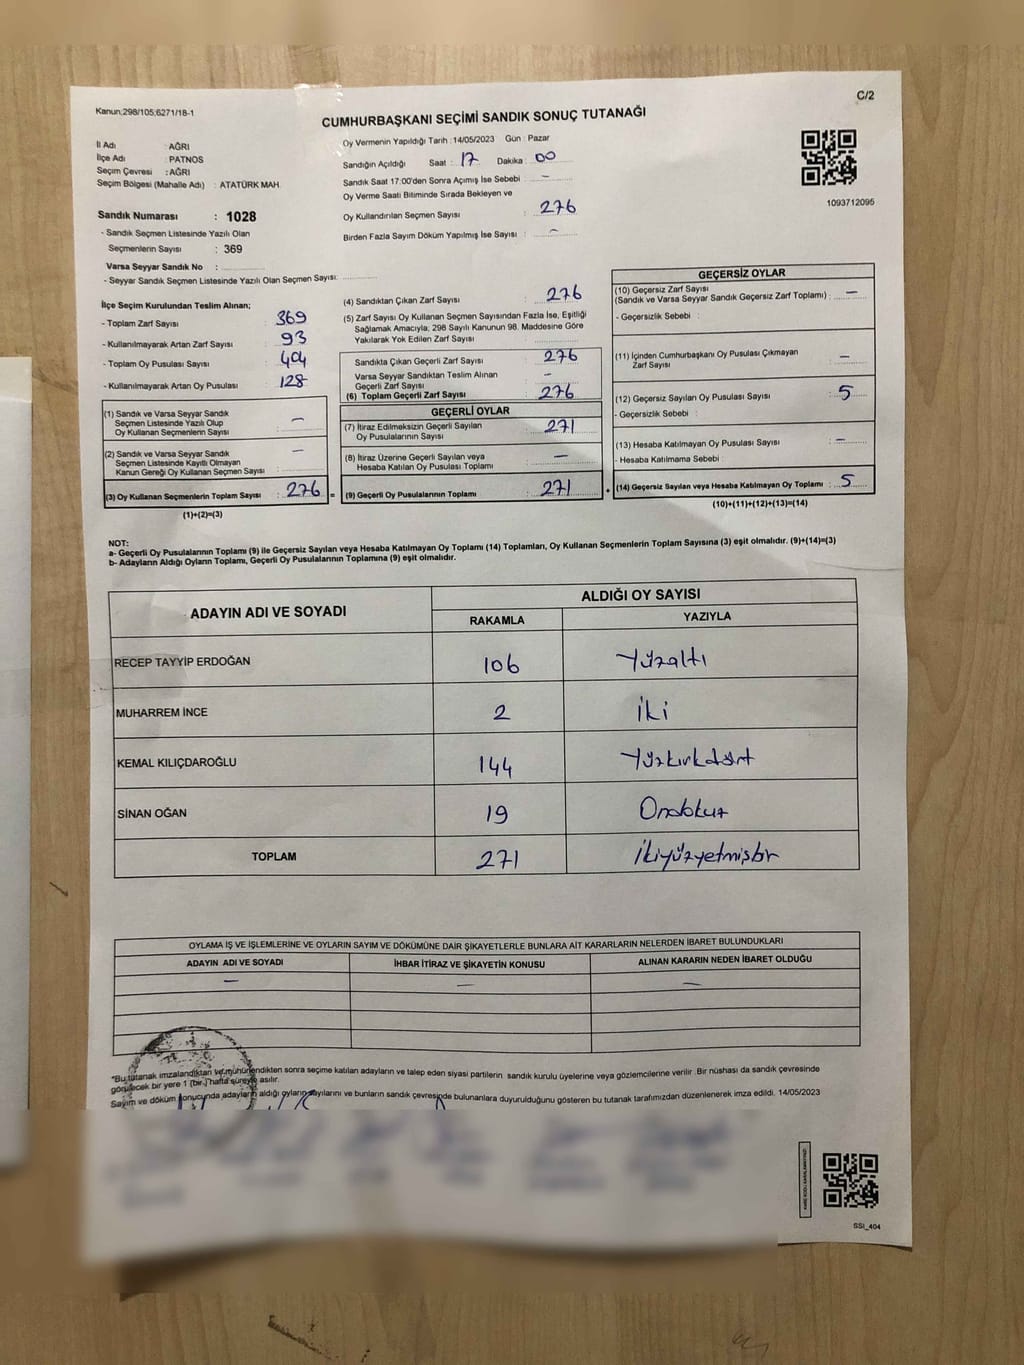 Kanun;298/105;6271/18-1
C/2
CUMHURBAŞKANI SEÇİMİ SANDIK SONUÇ TUTANAĞI
İl Adı : AĞRI
İlçe Adı : PATNOS
Seçim Çevresi : AĞRI
Seçim Bölgesi (Mahalle Adı) : ATATÜRK MAH.
Sandık Numarası : 1028
- Sandık Seçmen Listesinde Yazılı Olan
Seçmenlerin Sayısı : 369
Varsa Seyyar Sandık No :
- Seyyar Sandık Seçmen Listesinde Yazılı Olan Seçmen Sayısı:
Oy Vermenin Yapıldığı Tarih : 14/05/2023 Gün : Pazar
Sandığın Açıldığı Saat : 17 Dakika : 00
Sandık Saat 17:00'den Sonra Açımış İse Sebebi : -
Oy Verme Saati Bitiminde Sırada Bekleyen ve
Oy Kullandırılan Seçmen Sayısı : 276
Birden Fazla Sayım Döküm Yapılmış İse Sayısı : -
1093712095
İlçe Seçim Kurulundan Teslim Alınan;
- Toplam Zarf Sayısı : 369
- Kullanılmayarak Artan Zarf Sayısı : 93
- Toplam Oy Pusulası Sayısı : 404
- Kullanılmayarak Artan Oy Pusulası : 128
(1) Sandık ve Varsa Seyyar Sandık
Seçmen Listesinde Yazılı Olup
Oy Kullanan Seçmenlerin Sayısı : -
(2) Sandık ve Varsa Seyyar Sandık
Seçmen Listesinde Kayıtlı Olmayan
Kanun Gereği Oy Kullanan Seçmen Sayısı : -
(3) Oy Kullanan Seçmenlerin Toplam Sayısı : 276 =
(1)+(2)=(3)
(4) Sandıktan Çıkan Zarf Sayısı : 276
(5) Zarf Sayısı Oy Kullanan Seçmen Sayısından Fazla İse, Eşitliği
Sağlamak Amacıyla; 298 Sayılı Kanunun 98. Maddesine Göre
Yakılarak Yok Edilen Zarf Sayısı :
Sandıkta Çıkan Geçerli Zarf Sayısı : 276
Varsa Seyyar Sandıktan Teslim Alınan
Geçerli Zarf Sayısı : -
(6) Toplam Geçerli Zarf Sayısı : 276
GEÇERLİ OYLAR
(7) İtiraz Edilmeksizin Geçerli Sayılan
Oy Pusulalarının Sayısı : 271
(8) İtiraz Üzerine Geçerli Sayılan veya
Hesaba Katılan Oy Pusulası Toplamı : -
(9) Geçerli Oy Pusulalarının Toplamı : 271 +
GEÇERSİZ OYLAR
(10) Geçersiz Zarf Sayısı
(Sandık ve Varsa Seyyar Sandık Geçersiz Zarf Toplamı) : -
- Geçersizlik Sebebi :
(11) İçinden Cumhurbaşkanı Oy Pusulası Çıkmayan
Zarf Sayısı : -
(12) Geçersiz Sayılan Oy Pusulası Sayısı : 5
- Geçersizlik Sebebi :
(13) Hesaba Katılmayan Oy Pusulası Sayısı : -
- Hesaba Katılmama Sebebi :
(14) Geçersiz Sayılan veya Hesaba Katılmayan Oy Toplamı : 5
(10)+(11)+(12)+(13)=(14)
NOT:
a- Geçerli Oy Pusulalarının Toplamı (9) ile Geçersiz Sayılan veya Hesaba Katılmayan Oy Toplamı (14) Toplamları, Oy Kullanan Seçmenlerin Toplam Sayısına (3) eşit olmalıdır. (9)+(14)=(3)
b- Adayların Aldığı Oyların Toplamı, Geçerli Oy Pusulalarının Toplamına (9) eşit olmalıdır.
ADAYIN ADI VE SOYADI ALDIĞI OY SAYISI
RAKAMLA YAZIYLA
RECEP TAYYİP ERDOĞAN 106 Yüzaltı
MUHARREM İNCE 2 İki
KEMAL KILIÇDAROĞLU 144 Yüzkırkdört
SİNAN OĞAN 19 Ondokuz
TOPLAM 271 İkiyüzyetmişbir
OYLAMA İŞ VE İŞLEMLERİNE VE OYLARIN SAYIM VE DÖKÜMÜNE DAİR ŞİKAYETLERLE BUNLARA AİT KARARLARIN NELERDEN İBARET BULUNDUKLARI
ADAYIN ADI VE SOYADI İHBAR İTİRAZ VE ŞİKAYETİN KONUSU ALINAN KARARIN NEDEN İBARET OLDUĞU
- - -
"Bu tutanak imzalandıktan ve mühürlendikten sonra seçime katılan adayların ve talep eden siyasi partilerin sandık kurulu üyelerine veya gözlemcilerine verilir. Bir nüshası da sandık çevresinde
görülecek bir yere 1 (bir) hafta süreyle asılır.
Sayım ve döküm sonucunda adayların aldığı oyların sayılarını ve bunların sandık çevresinde bulunanlara duyurulduğunu gösteren bu tutanak tarafımızdan düzenlenerek imza edildi. 14/05/2023
SSI_404